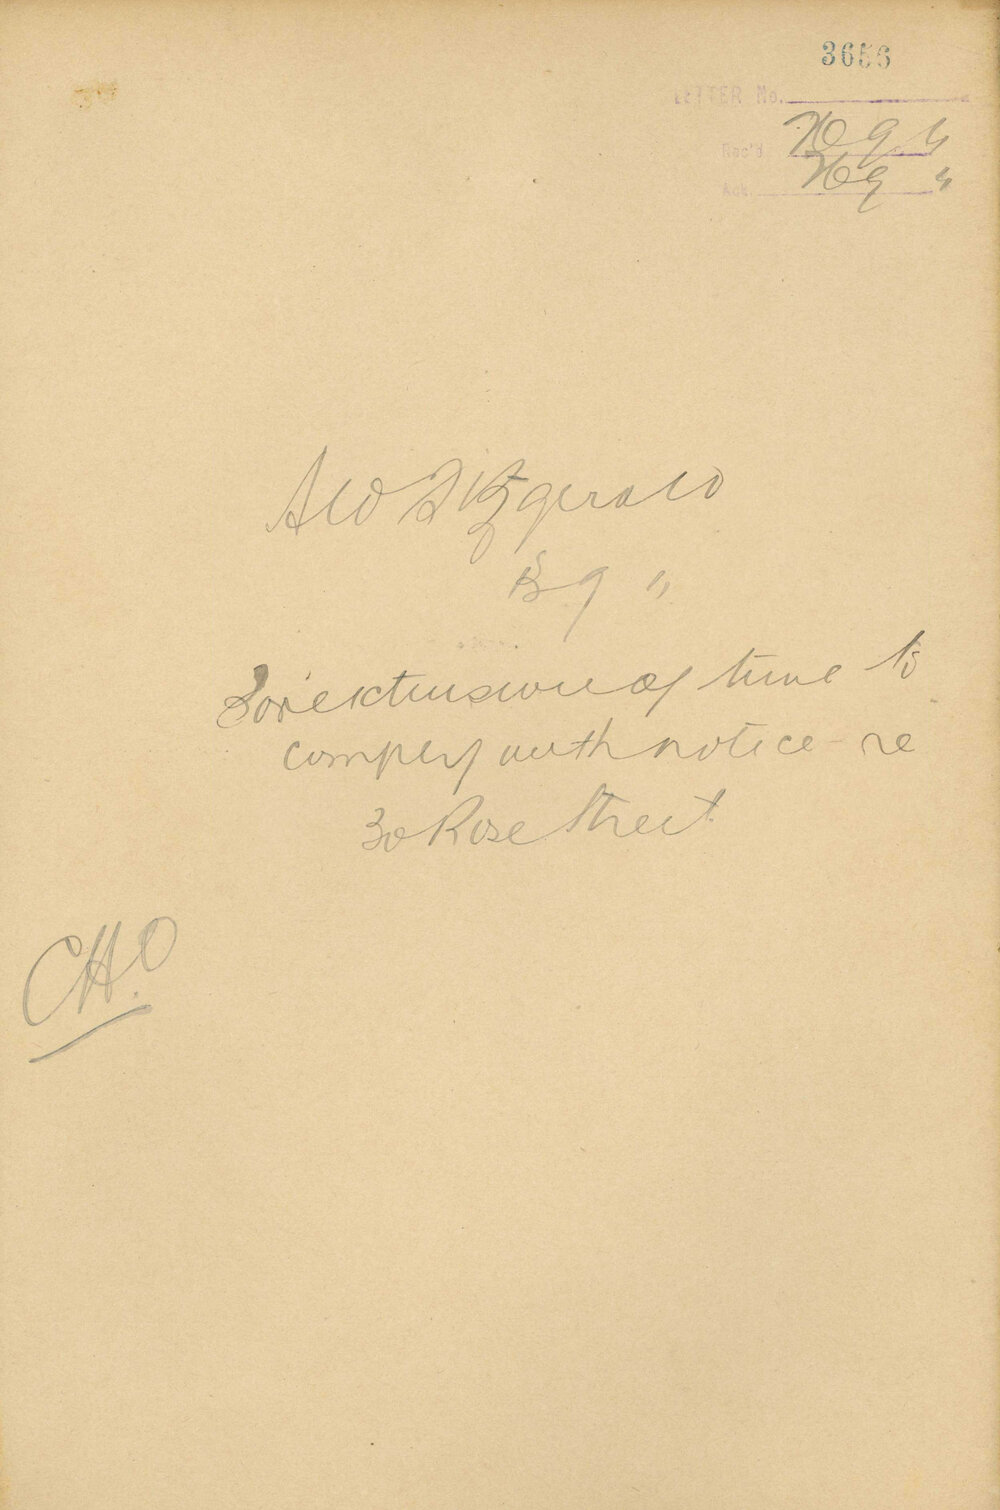 3656
LETTER No.
Rec'd
Ack
Fitzgerald
For extension of time to
comply with notice - re
30 Rose Street
CHO